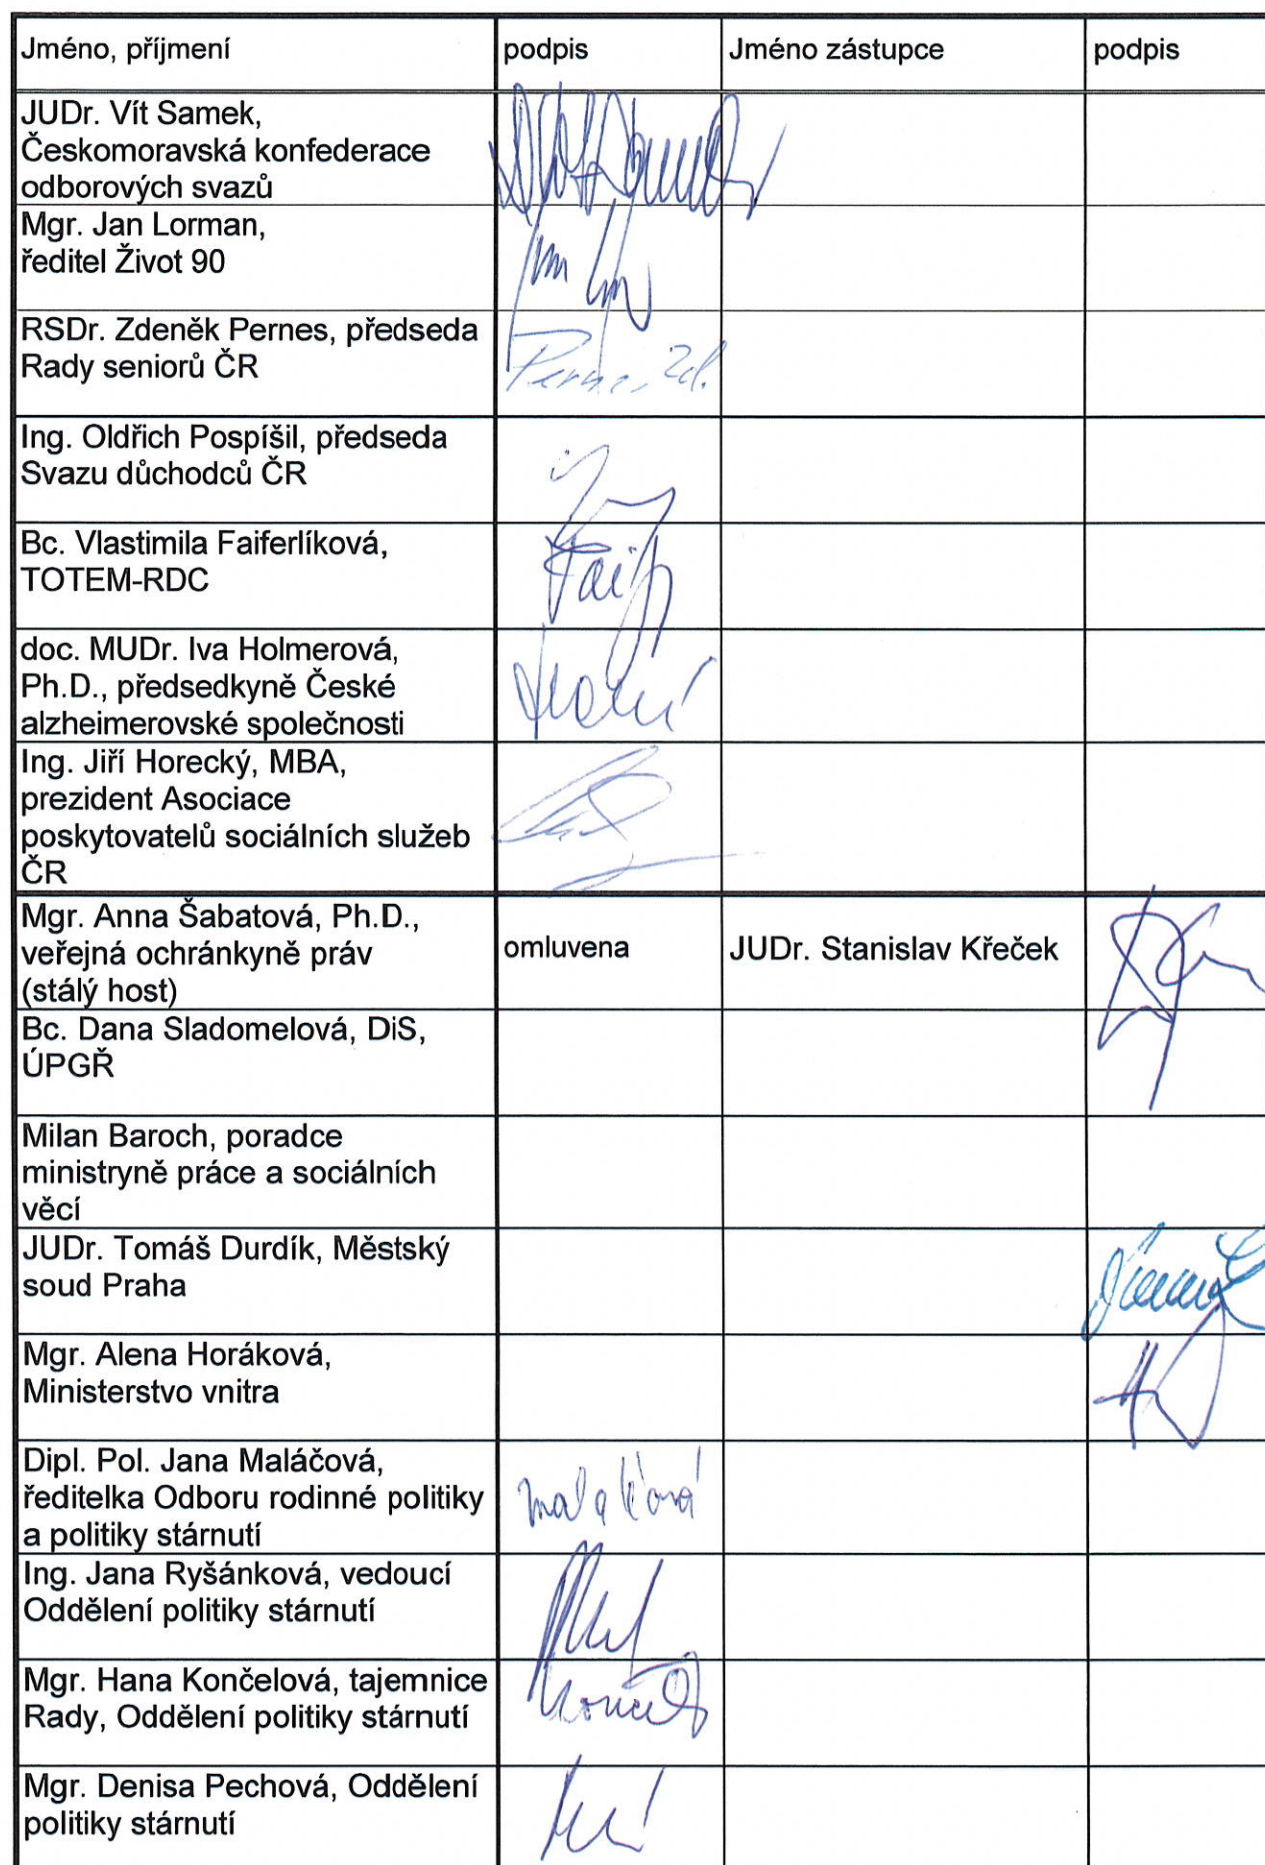 Jméno, příjmení podpis Jméno zástupce podpis
JUDr. Vít Samek,
Českomoravská konfederace
odborových svazů
Mgr. Jan Lorman,
ředitel Život 90
RSDr. Zdeněk Pernes, předseda
Rady seniorů ČR
Ing. Oldřich Pospíšil, předseda
Svazu důchodců ČR
Bc. Vlastimila Faiferlíková,
TOTEM-RDC
doc. MUDr. Iva Holmerová,
Ph.D., předsedkyně České
alzheimerovské společnosti
Ing. Jiří Horecký, MBA,
prezident Asociace
poskytovatelů sociálních služeb
ČR
Mgr. Anna Šabatová, Ph.D.,
veřejná ochránkyně práv omluvena JUDr. Stanislav Křeček
(stálý host)
Bc. Dana Sladomelová, DiS,
ÚPGŘ
Milan Baroch, poradce
ministryně práce a sociálních
věcí
JUDr. Tomáš Durdík, Městský
soud Praha
Mgr. Alena Horáková,
Ministerstvo vnitra
Dipl. Pol. Jana Maláčová,
ředitelka Odboru rodinné politiky
a politiky stárnutí
Ing. Jana Ryšánková, vedoucí
Oddělení politiky stárnutí
Mgr. Hana Končelová, tajemnice
Rady, Oddělení politiky stárnutí
Mgr. Denisa Pechová, Oddělení
politiky stárnutí